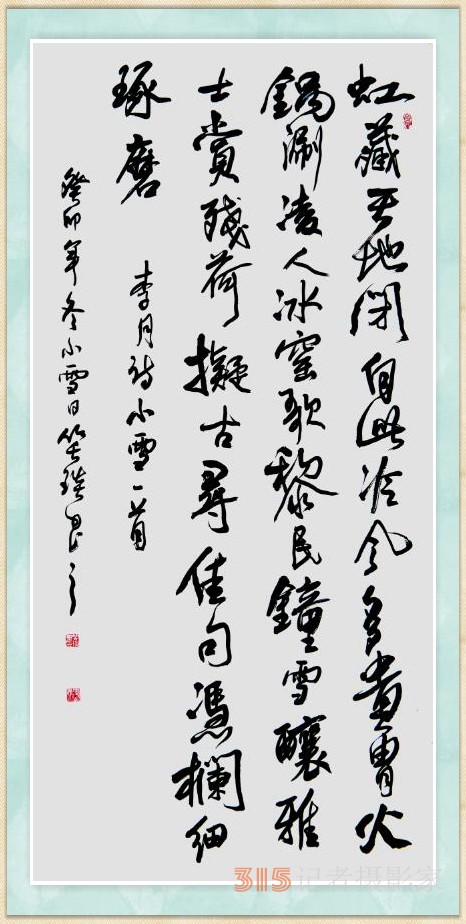 虹藏天地閉自此冷风多貴胄火
鍋涮凌人冰窖歌黎民鐘雪釀雅
士賞殘荷擬古尋佳句憑欄細
琢磨
李月詩小雪一首
癸卯年冬小雪日
315记者摄影家